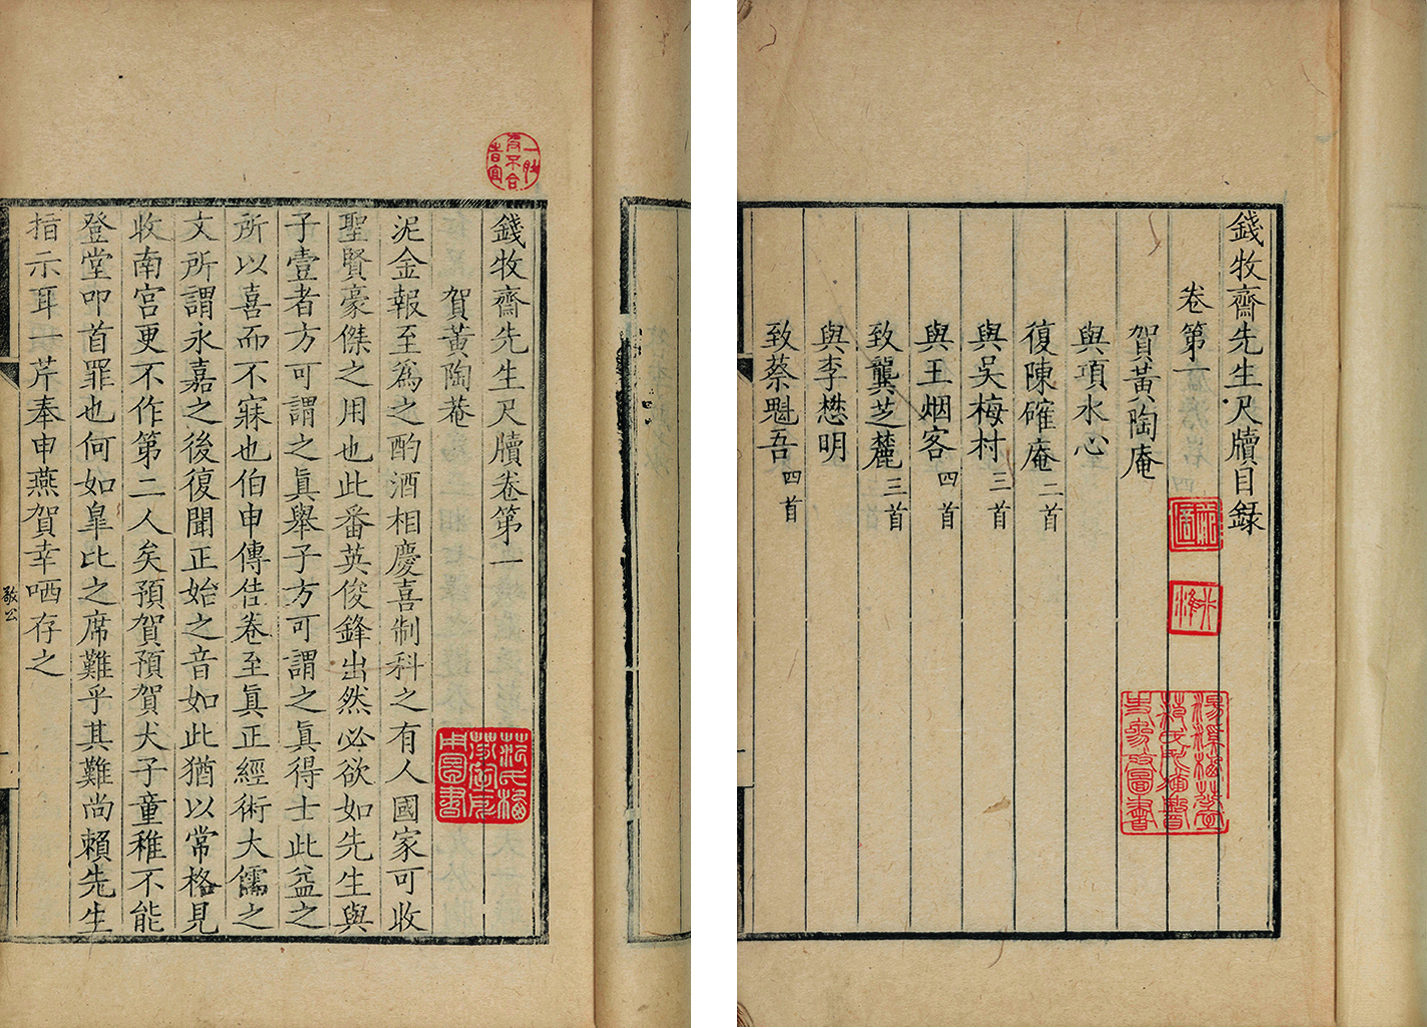 錢牧齋先生尺牘目録
卷第一
賀黃陶庵
與項水心
復陳確庵二首
與吴梅村三首
與王烟客四首
致龔芝麓三首
與李懋明
致蔡魁吾四首
錢牧齋先生尺牘卷第一
賀黃陶菴
泥金報至爲之酌酒相慶喜制科之有人國家可收
聖賢豪傑之用也此番英俊鋒出然必欲如先生與
子壹者方可謂之眞舉子方可謂之眞得士此益之
所以喜而不寐也伯申傳佶卷至眞正經術大儒之
文所謂永嘉之後復聞正始之音如此猶以常格見
收南宮更不作第二人矣預賀預賀犬子童稚不能
登堂叩首罪也何如臯比之席難乎其難尚賴先生
指示耳一芹奉申燕賀幸哂存之
敬公